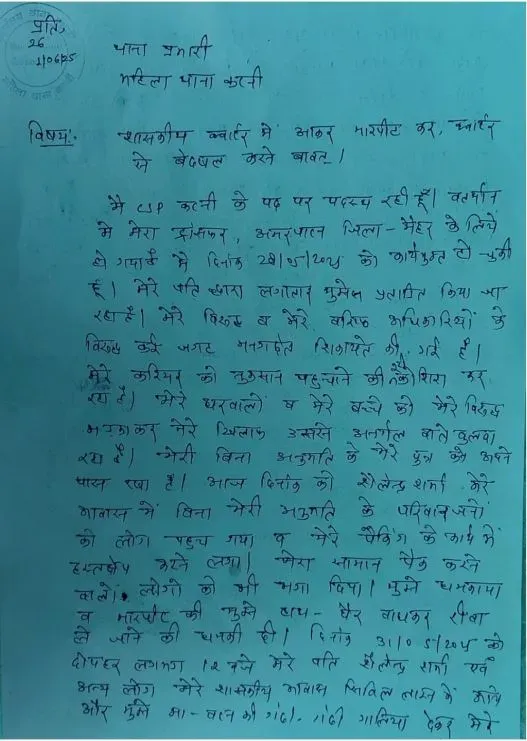 प्रति,
26
1/06/25
थाना प्रभारी
महिला थाना कटनी
विषय:- शासकीय क्वार्टर में आकर मारपीट कर, क्वार्टर
से बेदखल करने बाबत् ।
मै CSP कटनी के पद पर पदस्थ रही हूँ। वर्तमान
मे मेरा ट्रांसफर, अमरपाटन जिला - मैहर के लिये
हो गया है मै दिनांक 28/05/2025 को कार्यमुक्त हो चुकी
हूँ। मेरे पति द्वारा लगातार मुझे प्रताडित किया जा
रहा है। मेरे विरूद्ध व मेरे वरिष्ठ अधिकारियों के
विरूद्ध कई जगह मनगढ़ंत शिकायते की गई है।
मेरे करियर को नुकसान पहुचाने की कोशिश कर
रहा है। मेरे घरवालों व मेरे बच्चे को मेरे विरूद्ध
भडकाकर मेरे खिलाफ उससे अनर्गल बाते बुलवा
रहा है। मेरी बिना अनुमति के मेरे पुत्र को अपने
पास रखा है। आज दिनांक को शैलेन्द्र शर्मा मेरे
आवास में बिना मेरी अनुमति के परिवारजनों
को लोग पहुच गया व मेरे पैकिंग के कार्य में
हस्तक्षेप करने लगा। मेरा सामान पैक करने
वालो लोगो को भी भगा दिया। मुझे धमकाया
व मारपीट की मुझे हाथ - पैर बांधकर रीवा
ले जाने की धमकी दी। दिनांक 31/05/2025 को
दोपहर लगभग 12 बजे मेरे पति शैलेन्द्र शर्मा एवं
अन्य लोग मेरे शासकीय आवास सिविल लाइन में आये
और मुझे मा - बहन की गंदी - गंदी गालिया देकर मेरे